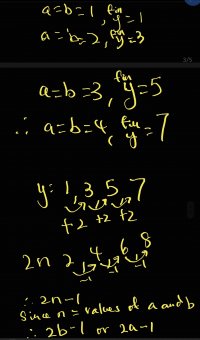 a=b=1, fin y=1
a=b=2, fin y=3
3/5
a=b=3, fin y=5
∴ a=b=4, fin y=7
y: 1, 3, 5, 7
+2 +2 +2
2n 2 4 6 8
-1 -1 -1
∴ 2n-1
Since n = values of a and b
∴ 2b-1 or 2a-1